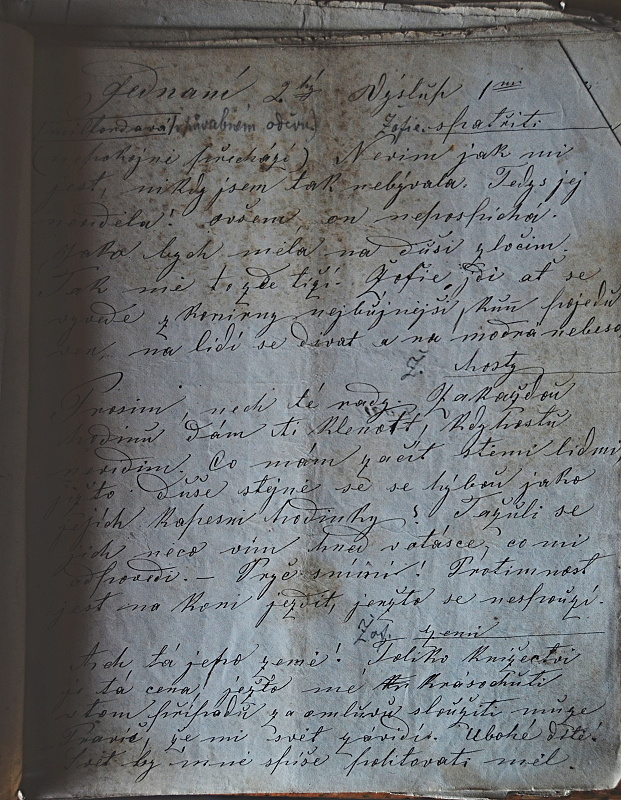 Jednání 2hé Výstup 1ní
půvabném oděvu. Žofie. spatřiti
přechází) Nevim jak mi
jest, nikdy jsem tak nebývala. Tedys jej
neviděla! ovšem, on nepospíchá.
Jako bych měla na duši zločin.
Tak mě to zde tíží. Žofie, jdi ať se
vyvede z konírny nejbujnější kůň pojedu
ven, na lidi se dívat a na modrá nebesa
Žof. hosty
Prosim, nech té rady. Za každou
hodinu dám ti klenott, kdy hostů
nevidim. Co mám začít stěmi lidmi,
jižto duše stejně se se hýbou jako
jejich kapesní hodinky? Tážuli se
jich něco vím hned v otásce, co mi
odpovědí. – Pryč s nimi! Protimnost
jest na koni jezdit, jenžto se nesprouzí.
Žof. zemi
Ach tá jeho země! Toliko knížectvi
je tá cena, ježto mé krásochuti
v tom případu za omluvu sloužiti může
Pravíč, že mi svět závidí. Ubohé dítě!
Svět by mně spíše politovati měl.